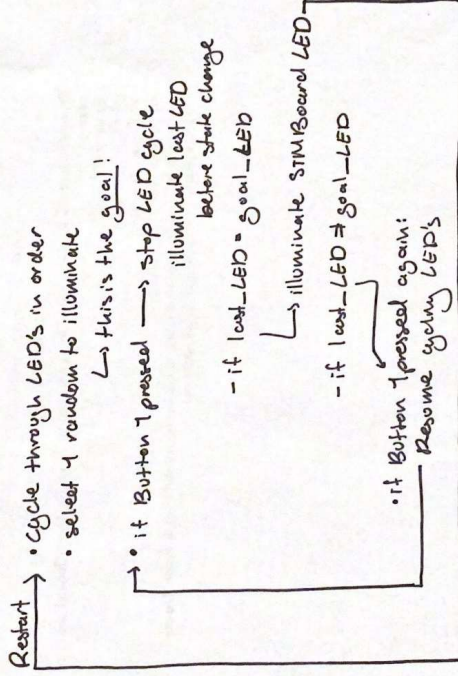 Restart
• cycle through LED's in order
• select 1 random to illuminate
↳ this is the goal!
• if Button 1 pressed → stop LED cycle
illuminate last LED
before state change
- if last_LED = goal_LED
↳ illuminate STM Board LED
- if last_LED ≠ goal_LED
• if Button 1 pressed again:
Resume cycling LED's